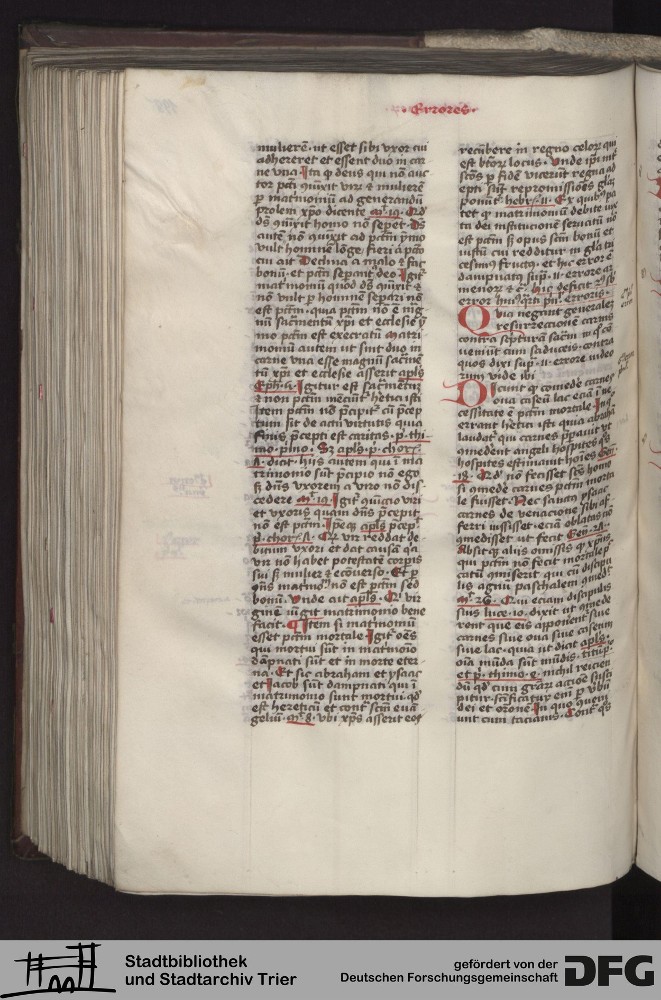 · Errores ·
mulierē · ut esset sibi uxor cui
adhereret et essent duo in car
ne una Ita ꝙ deus qui nō auc
tor pctī ꝯiūxit virū ⁊ mulierē
ꝑ matrimoniū ad generandū
prolem xp̄o dicente mͭ · 19 · Qd̄
ds̄ ꝯiūxit homo nō sepet · Ds̄
autē nō ꝯiūxit ad pctm̄ ymo
vult hominē lōge fieri a pctō
cui ait Declina a malo ⁊ fac
bonū · et pctm̄ sepant deo Igit̄
matmoniū quod ds̄ ꝯiūxit ⁊
nō vult ꝑ hominē separi nō
est pctm̄ · quia pctm̄ nō ē mag
nū sacramentū xp̄i et ecclesie y
mo pctm̄ est execratū Matri
moniū autem ut sint duo in
carne una esse magnū sacrmē
tū xp̄i et ecclesie asserit apls̄
Eph̄ · 5 · Igitur est sacrmentū
⁊ non pctm̄ hetici isti
Item pctm̄ nō p̄cipit̄ cū p̄cep
tum sit de actu virtutis quia
finis p̄cepti est caritas · p̄ · thi
mo · pimo · Sꝫ apls̄ · p̄ · chor̄ ·
dicit · hijs autem qui ī ma
trimonio sūt p̄cipio nō ego
sꝫ dn̄s uxorem a viro nō dis
cedere mͭ · 19 · Igit̄ viri
et uxoris quam dn̄s p̄cepit
nō est pctm̄ · apls̄ p̄cep̄
p̄ · chor̄ · Qͥ vir reddat de
bitum uxori et dat causā qͣ
vir nō habet potestatē corpis
sui sꝫ mulier ⁊ ecōuerso · Et ꝑ
qn̄s matmōͥ nō est pctm̄ sed
bonū · Vnde ait apls̄ · Qͥ vir
ginē iūgit matrimonio bene
facit · Item si matmoniū
esset pctm̄ mortale Igit̄ oēs
qui mortui sūt in matmōio
dāpnati sūt et in morte eter
na · Et sic abraham et ysaac
et Jacob sūt dampnati qui ī
matrimonio sunt mortui · qd̄
est hereticū et cont̄ scm̄ euā
geliū · mͭ · 8 · vbi xp̄s asserit eos
recūbere in regno celoꝝ qui
est btōꝝ locus · Vnde ip̄i int̄
scōs ꝑ fidē vicerūt regna ad
epti sūt repromissiōes
ponūt hebr̄ · 11 · Ex quibꝫ pa
tet ꝙ matrimoniū debite iux
ta dei institucionē seruatū nō
est pctm̄ sꝫ opus scm̄ bonū et
iustū cui redditur in gl̄a tri
cesimꝰ fructꝫ · et hic error ē
dampnatꝫ sup̄ · 11 · errore ar
menoꝝ ⁊ c̄ · hic deficit
error
Quia negant generalez
resurreccionē carnis
contra scpturā sacrā in ꝙ cō
ueniūt cum saduceis · contra
quos dixi sup̄ · 11 · errore iudeo
rum vide ibi
Dicunt ꝙ comede carnes
oua caseū lac eciā ī ne
cessitate ē pctm̄ mortale In
errant hetici isti quia abrahā
laudat̄ qui carnes p̄pauit ut
ꝯmedent angeli hospites qͦs
hospites estimauit hoīes Gen̄
18 · Qd̄ nō fecisset scs̄ homo
si ꝯmedē carnes pctm̄ morta
le fuisset · Nec sanctꝫ ysaac
carnes de venacione sibi af
ferri iussisset · eciā oblatas nō
ꝯmedisset ut fecit Gen̄ ·
Absit ꝙ alijs omissis ꝙ xp̄us
qui pctm̄ nō fecit mortale
ꝯmiserit qui cū discipu
lis agnū paschalem ꝯmed̄
mͭ · 26 · Qui eciam discipulis
suis luce · 10 · dixit ut ꝯmede
rent que eis apponent̄ siue
carnes siue oua siue caseum
siue lac · quia ut dicit apls̄
oīa mūda sūt mūdis · tit
et p̄ · thimo · nichil reicien
dū qd̄ cum graꝝ acciōe susci
pitur · scīficatur eī ꝑ v̄bū
dei et orōnē In quo ꝯueni
unt cum tacianis · Cont̄ qͦs
Stadtbibliothek
und Stadtarchiv Trier
gefördert von der
Deutschen Forschungsgemeinschaft
DFG